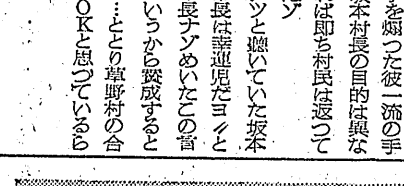 を煽つた彼一流の手
本村長の目的は異な
ば即ち村民は返つて
ゾ
ツと聴いていた坂本
長は幸運児だヨ〃と
長ナゾめいたこの言
いうから賛成すると
…ととり草野村の合
OKと思つているら